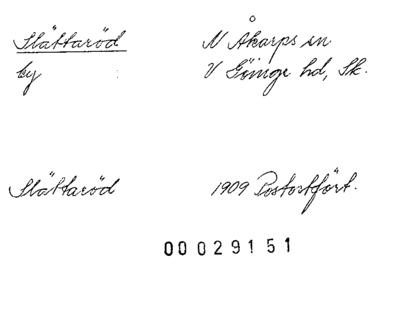 Slättaröd N Åkarps sn
by V Göinge hd, Sk.
Slättaröd 1909 Postortfört.
00029151